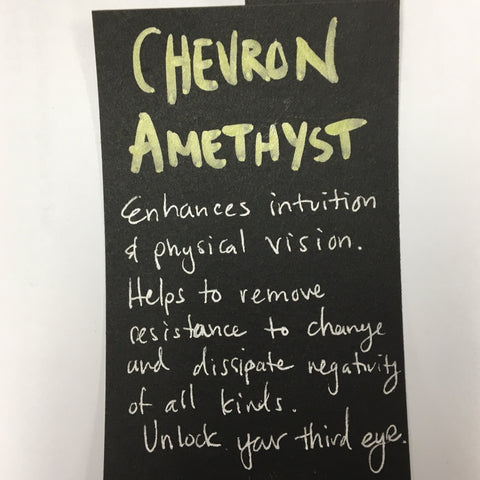 CHEVRON
AMETHYST
Enhances intuition
& physical vision.
Helps to remove
resistance to change
and dissipate negativity
of all kinds.
Unlock your third eye.